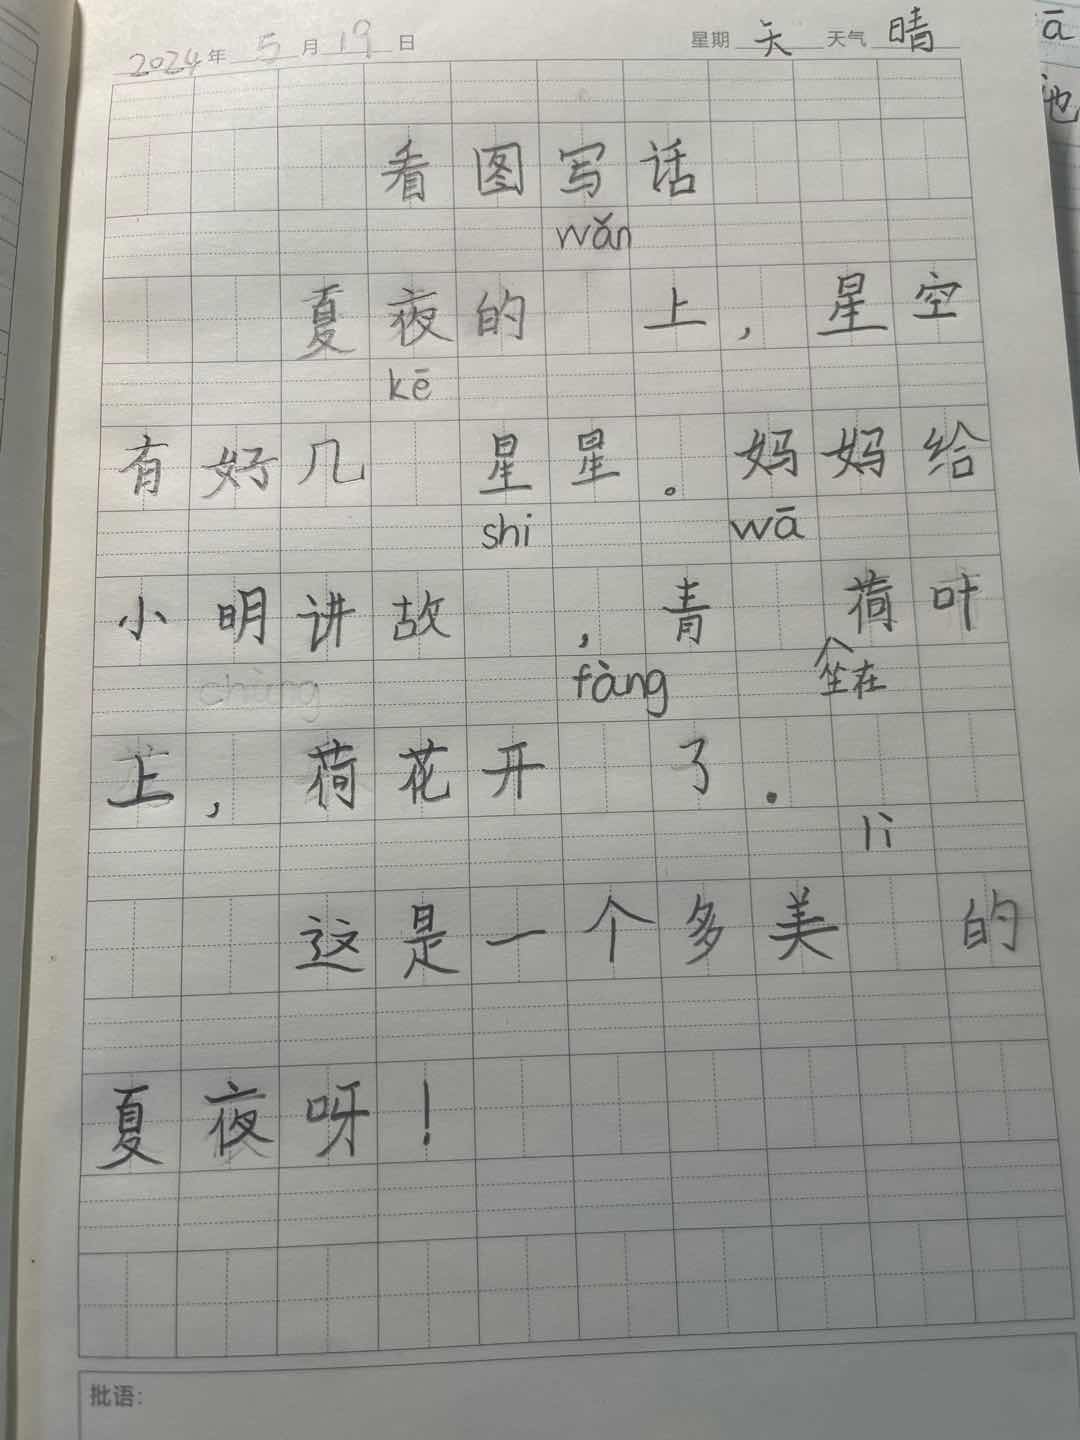 2024年5月19日 星期天 天气晴
ā
地
看图写话
wǎn
夏夜的 上，星空
kē
有好几 星星。妈妈给
shi wā
小明讲故 ，青 荷叶
chùng fàng 坐在
上，荷花开 了.
lì
这是一个多美 的
夏夜呀！
批语：